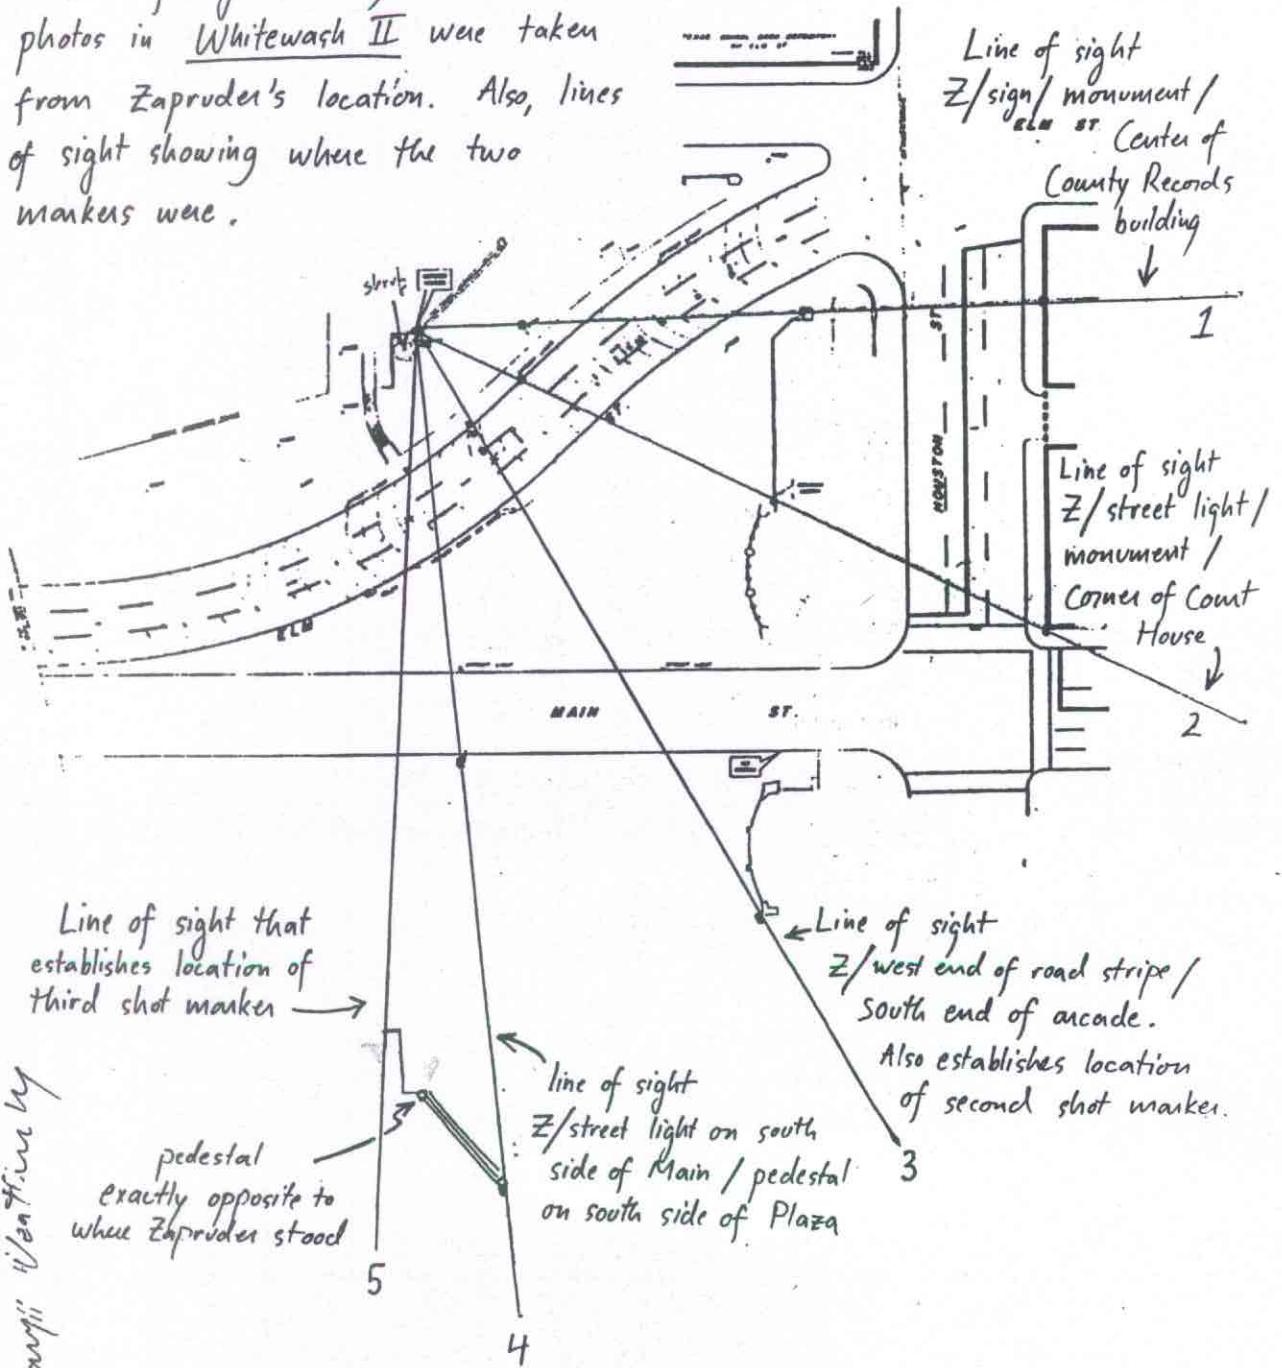 photos in Whitewash II were taken
from Zapruder's location. Also, lines
of sight showing where the two
markers were.
Line of sight
Z/sign/monument/
ELM ST.
Center of
County Records
building
1
ST
HOUSTON
Line of sight
Z/street light/
monument/
Corner of Court
House
2
ELM
ELM
MAIN ST.
Line of sight that
establishes location of
third shot marker
Line of sight
Z/west end of road stripe/
South end of arcade.
Also establishes location
of second shot marker.
3
line of sight
Z/street light on south
side of Main / pedestal
on south side of Plaza
pedestal
exactly opposite to
where Zapruder stood
5
4